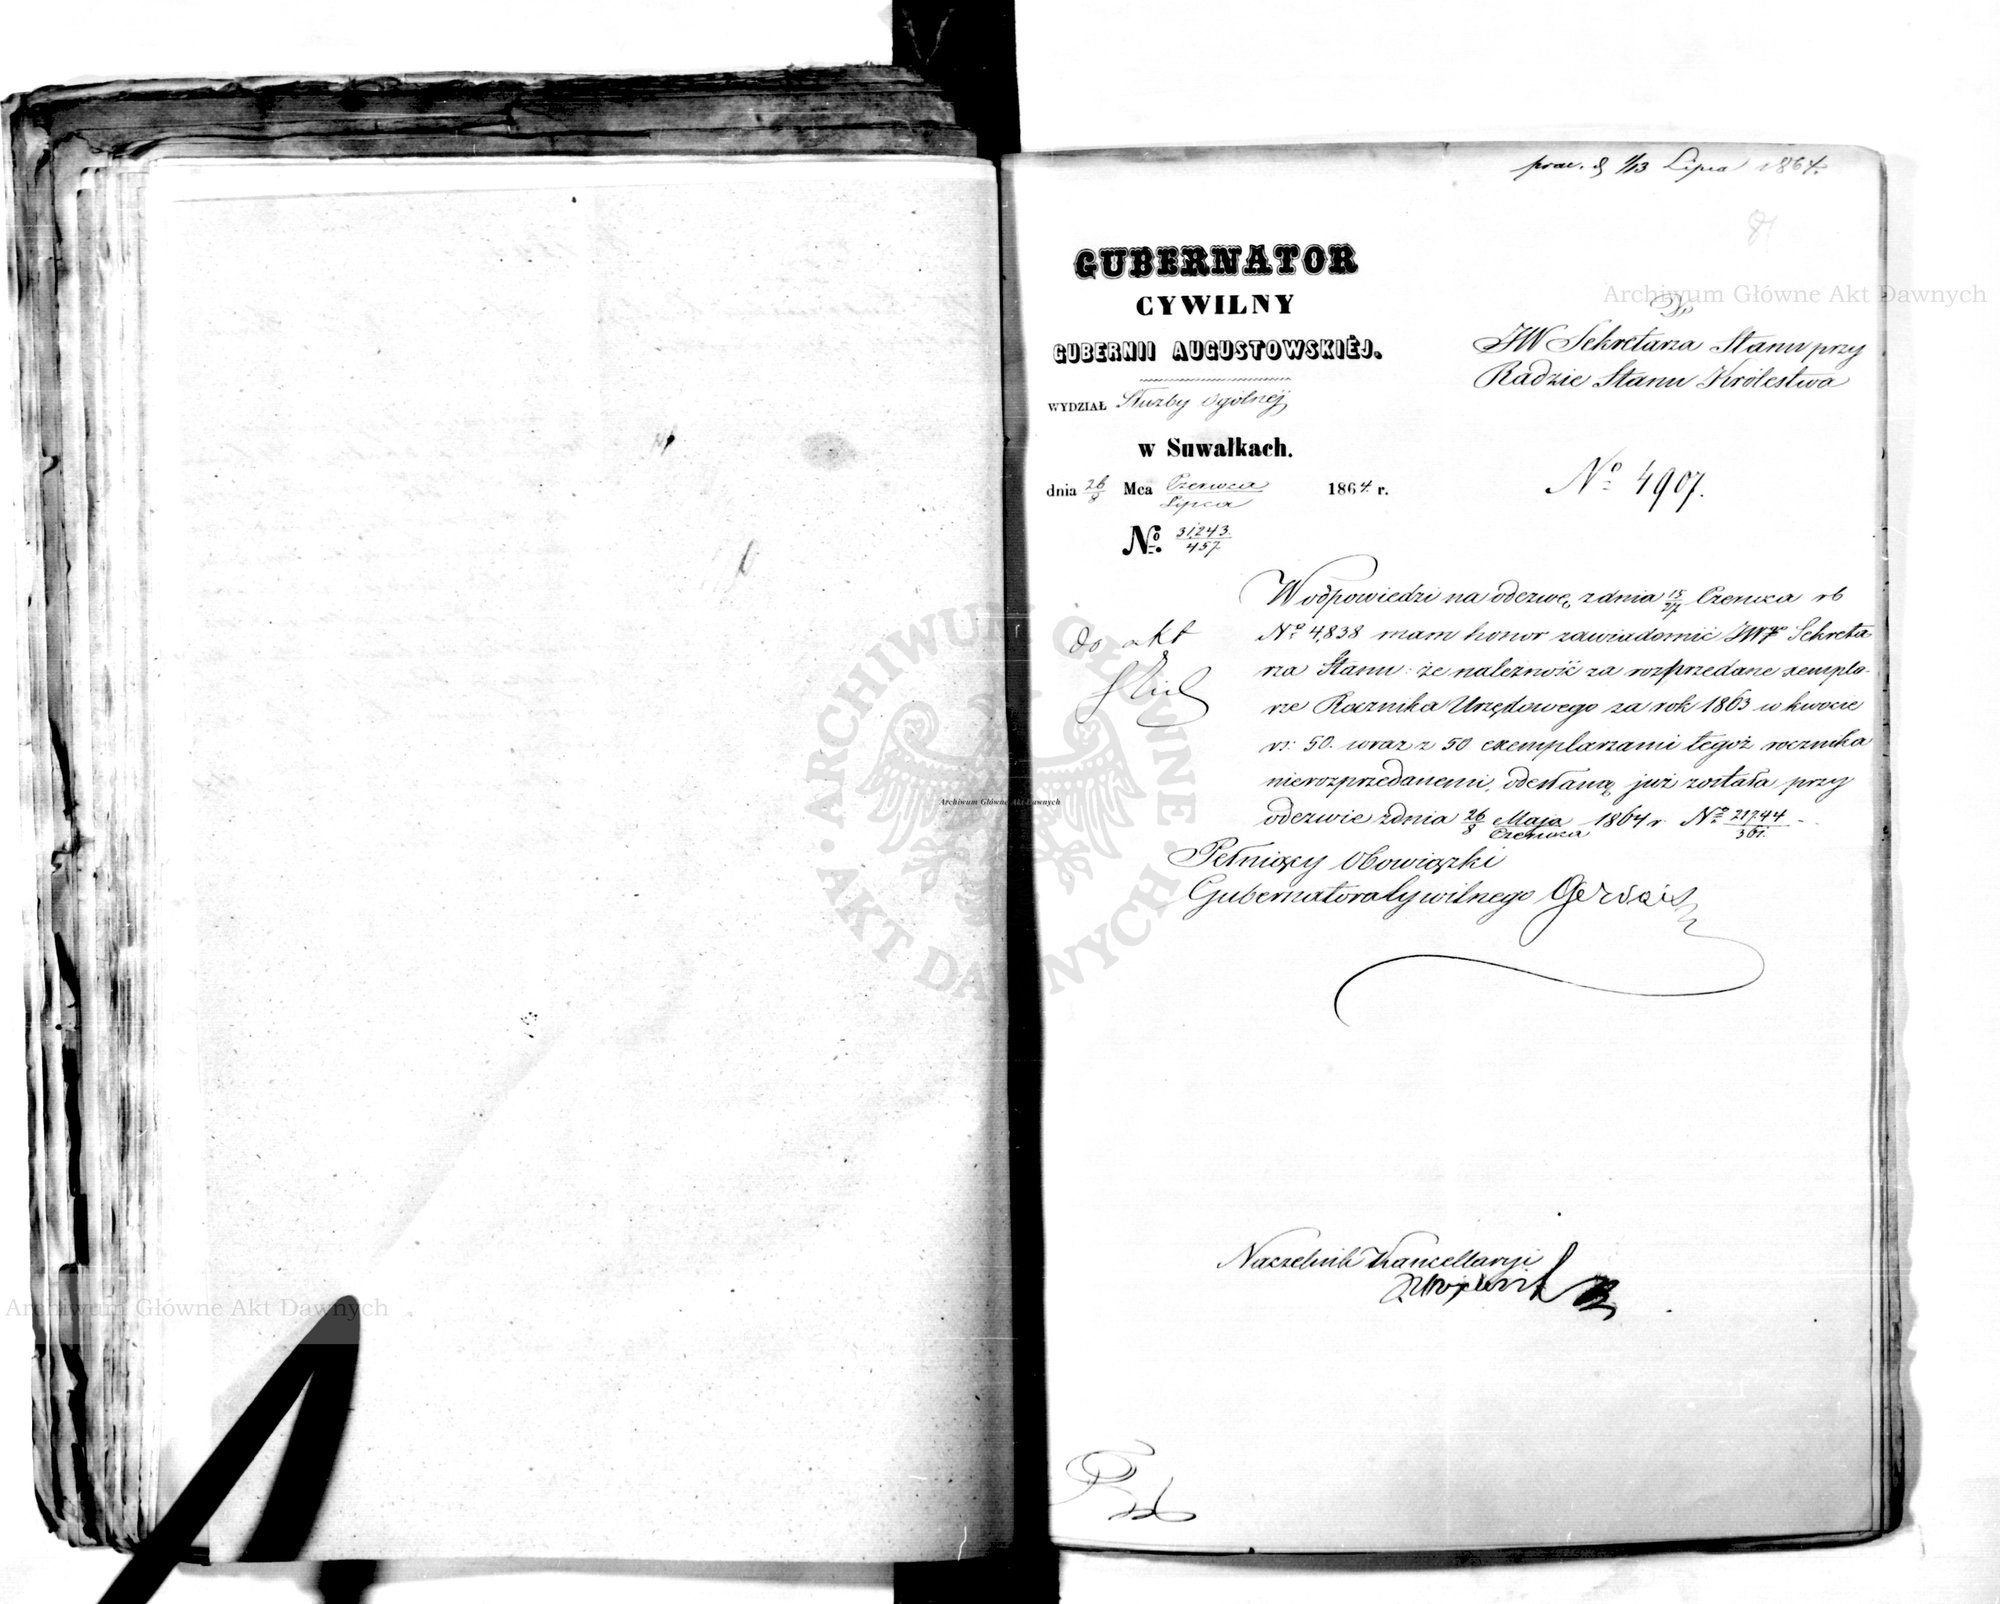 Lipca 1864.
GUBERNATOR
CYWILNY
GUBERNII AUGUSTOWSKIÉJ.
WYDZIAŁ Służby Ogólnéj
w Suwałkach.
dnia 26/8 Mca Czerwca/Lipca 1864 r.
No. 31243./457
Do
JW Sekretarza Stanu przy
Radzie Stanu Królestwa
No 4907.
do akt
W odpowiedzi na odezwę z dnia 15/27 Czerwca rb
No 4,838 mam honor zawiadomić JWgo Sekreta
rza Stanu: że należność za rozprzedane exempla-
rze Rocznika Urzędowego za rok 1863 w kwocie
rs: 50. wraz z 50 exemplarzami tegoż rocznika
nierozprzedanemi, odesłaną już została przy
odezwie z dnia 26/8 Maja/Czerwca 1864 r No 21744/361.
Pełniący Obowiązki
Gubernatora Cywilnego Gervais
Naczelnik Kancellaryi
Archiwum Główne Akt Dawnych
Archiwum Główne Akt Dawnych
Archiwum Główne Akt Dawnych
ARCHIWUM GŁÓWNE AKT DAWNYCH